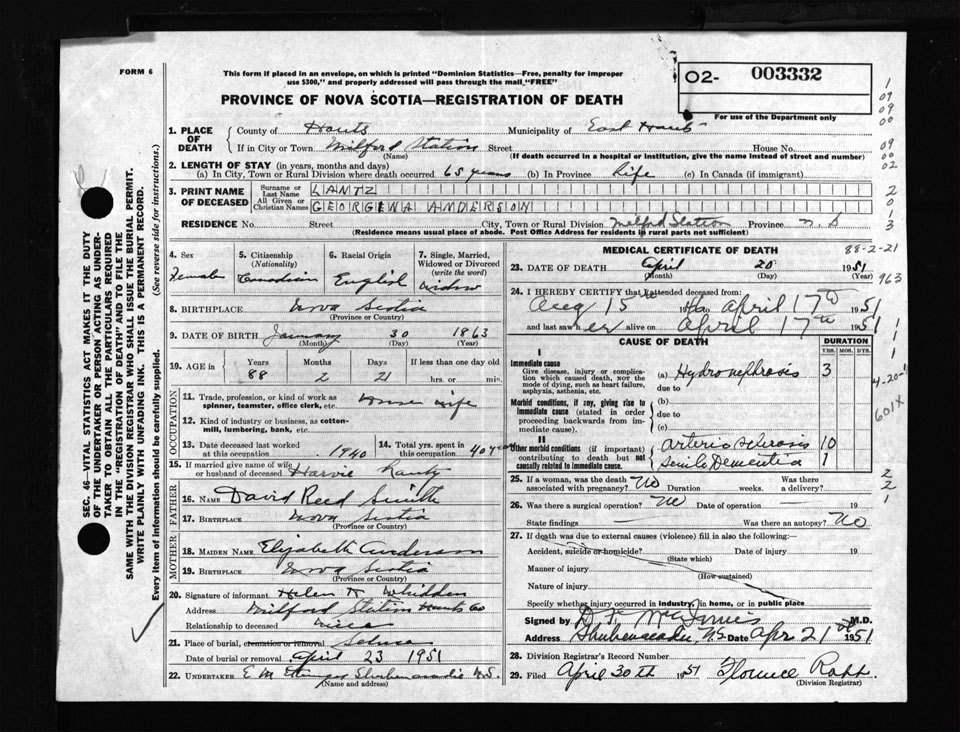 FORM 6
This form if placed in an envelope, on which is printed "Dominion Statistics—Free, penalty for improper
use $300," and properly addressed will pass through the mail "FREE"
PROVINCE OF NOVA SCOTIA—REGISTRATION OF DEATH
O2- 003332
For use of the Department only
1. PLACE OF DEATH
County of Hants Municipality of East Hants
If in City or Town Milford Station Street House No.
(Name) (If death occurred in a hospital or institution, give the name instead of street and number)
2. LENGTH OF STAY (in years, months and days)
(a) In City, Town or Rural Division where death occurred 65 years (b) In Province Life (c) In Canada (if immigrant)
3. PRINT NAME OF DECEASED
Surname or Last Name LANTZ
All Given or Christian Names GEORGENA ANDERSON
RESIDENCE No. Street City, Town or Rural Division Milford Station Province N.S
(Residence means usual place of abode. Post Office Address for residents in rural parts not sufficient)
4. Sex
Female
5. Citizenship
(Nationality)
Canadian
6. Racial Origin
English
7. Single, Married,
Widowed or Divorced
(write the word)
widow
8. BIRTHPLACE Nova Scotia
(Province or Country)
9. DATE OF BIRTH January 30 1863
(Month) (Day) (Year)
10. AGE in
Years Months Days If less than one day old
88 2 21 hrs. or min.
OCCUPATION
11. Trade, profession, or kind of work as
spinner, teamster, office clerk, etc. House wife
12. Kind of industry or business, as cotton-
mill, lumbering, bank, etc.
13. Date deceased last worked
at this occupation 1940
14. Total yrs. spent in
this occupation
15. If married give name of wife
or husband of deceased Harvie Lantz
FATHER
16. NAME David Reed Smith
17. BIRTHPLACE Nova Scotia
(Province or Country)
MOTHER
18. MAIDEN NAME Elizabeth Anderson
19. BIRTHPLACE Nova Scotia
(Province or Country)
20. Signature of informant Helen Whidden
Address Milford Station Hants Co
Relationship to deceased niece
21. Place of burial, cremation or removal
Date of burial or removal April 23 1951
22. UNDERTAKER E M Shubenacadie N.S.
(Name and address)
MEDICAL CERTIFICATE OF DEATH
88-2-21
23. DATE OF DEATH April 20 1951
(Month) (Day) (Year)
24. I HEREBY CERTIFY that I attended deceased from:
Aug 15th to April 17th 1951
and last saw her alive on April 17th 1951
CAUSE OF DEATH
DURATION
YRS. MOS. DYS.
I
Immediate cause
Give disease, injury or complica-
tion which caused death, NOT the
mode of dying, such as heart failure,
asphyxia, asthenia, etc.
(a) Hydronephrosis 3
due to
Morbid conditions, if any, giving rise to
immediate cause (stated in order
proceeding backwards from im-
mediate cause).
(b)
due to
(c)
II
Other morbid conditions (if important)
contributing to death but not
causally related to immediate cause.
arterio sclerosis 10
Senile Dementia 1
25. If a woman, was the death
associated with pregnancy? No Duration weeks. Was there
a delivery?
26. Was there a surgical operation? No Date of operation 19
State findings Was there an autopsy? No
27. If death was due to external causes (violence) fill in also the following:
Accident, suicide or homicide? Date of injury 19
(State which)
Manner of injury
(How sustained)
Nature of injury
Specify whether injury occurred in industry, in home, or in public place
Signed by D F McInnis M.D.
Address Shubenacadie, N.S. Date Apr 21 1951
28. Division Registrar's Record Number
29. Filed April 30th 1951 Florence Rapp
(Division Registrar)
SEC. 46—VITAL STATISTICS ACT MAKES IT THE DUTY
OF THE UNDERTAKER OR PERSON ACTING AS UNDER-
TAKER TO OBTAIN ALL THE PARTICULARS REQUIRED
IN THE "REGISTRATION OF DEATH" AND TO FILE THE
SAME WITH THE DIVISION REGISTRAR WHO SHALL ISSUE THE BURIAL PERMIT.
WRITE PLAINLY WITH UNFADING INK. THIS IS A PERMANENT RECORD.
Every item of information should be carefully supplied. (See reverse side for instructions.)
1
09
09
00
09
00
02
2
0
1
3
963
1
1
1
4-20-1
601X
2
2
1